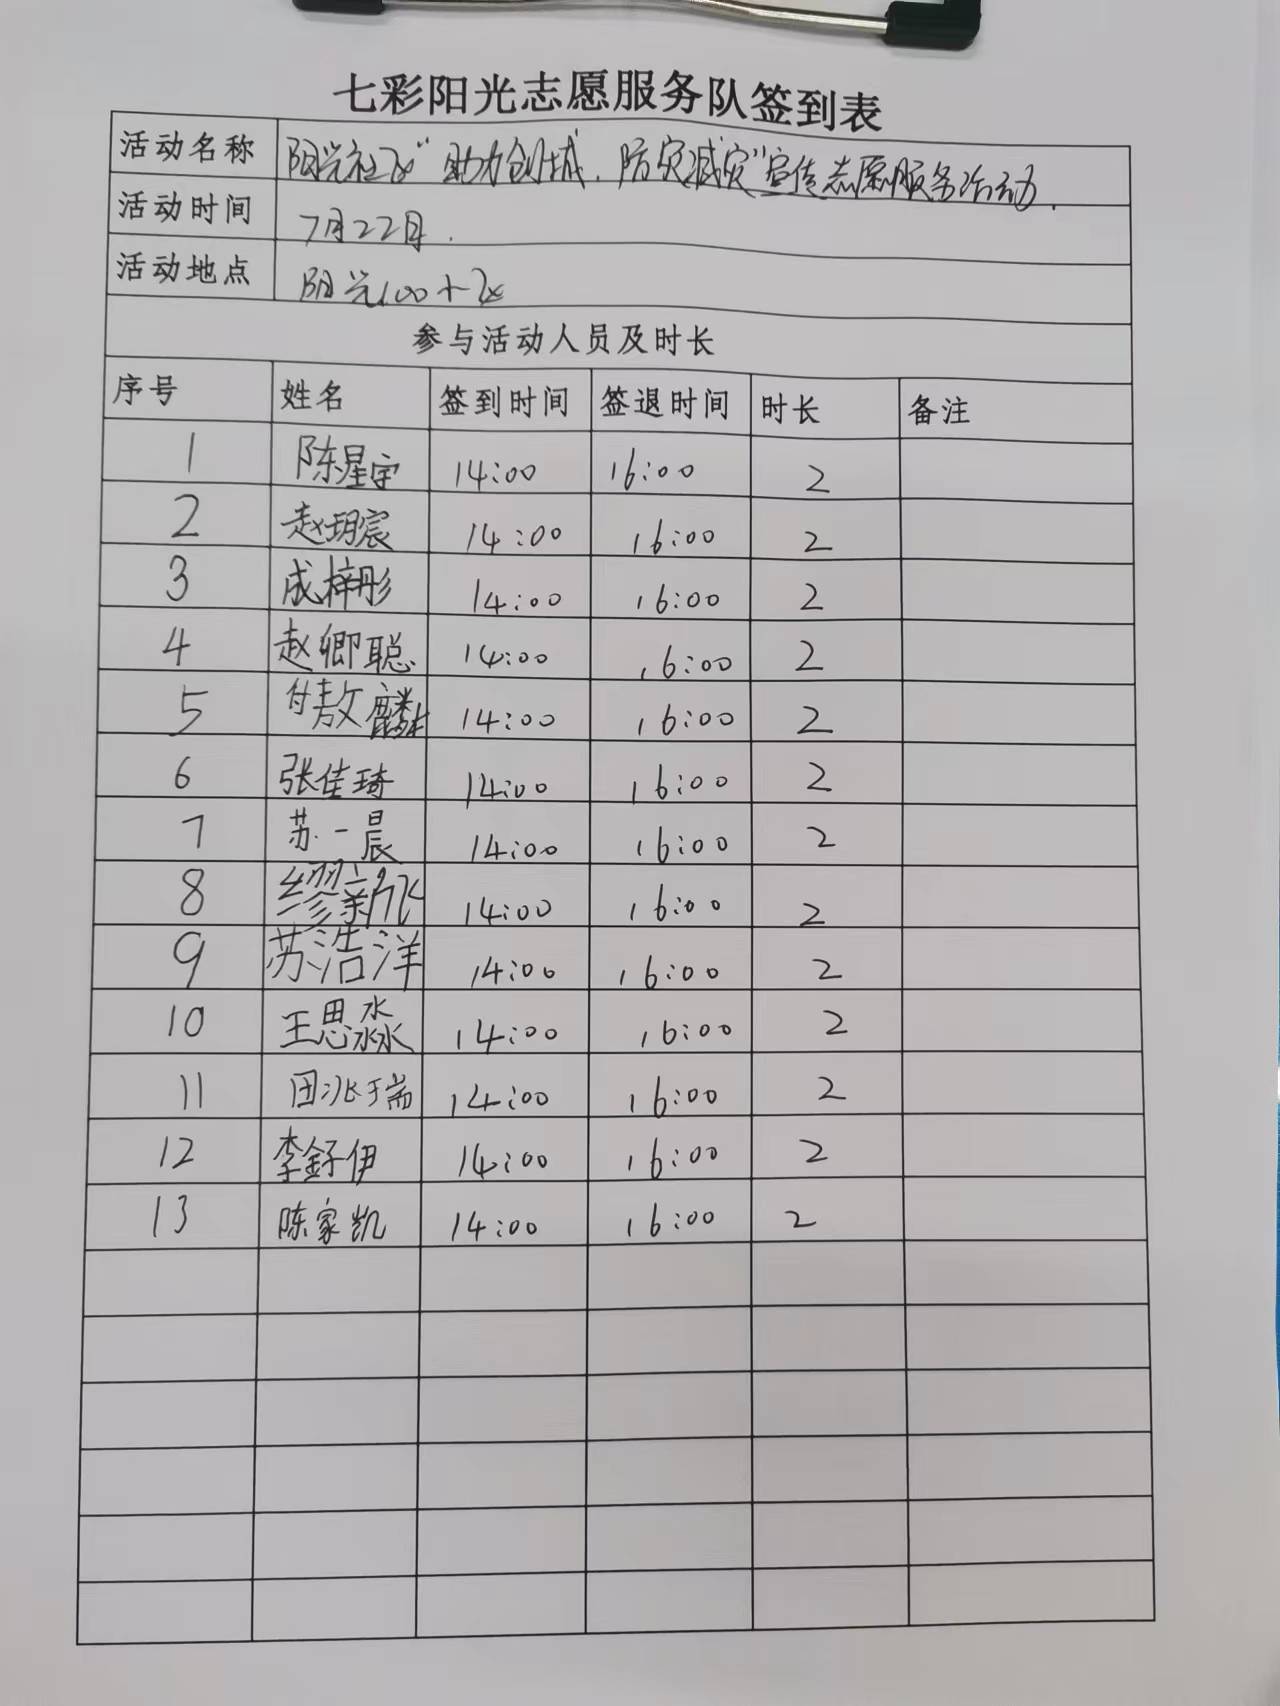 七彩阳光志愿服务队签到表
活动名称 阳光社区"助力创城,防灾减灾"宣传志愿服务活动.
活动时间 7月22日.
活动地点 阳光100小区
参与活动人员及时长
序号 姓名 签到时间 签退时间 时长 备注
1 陈星宇 14:00 16:00 2
2 赵玥宸 14:00 16:00 2
3 成梓彤 14:00 16:00 2
4 赵卿聪 14:00 16:00 2
5 付敖麟 14:00 16:00 2
6 张佳琦 14:00 16:00 2
7 苏一晨 14:00 16:00 2
8 缪新飞 14:00 16:00 2
9 苏浩洋 14:00 16:00 2
10 王思淼 14:00 16:00 2
11 田兆瑞 14:00 16:00 2
12 李釨伊 14:00 16:00 2
13 陈家凯 14:00 16:00 2